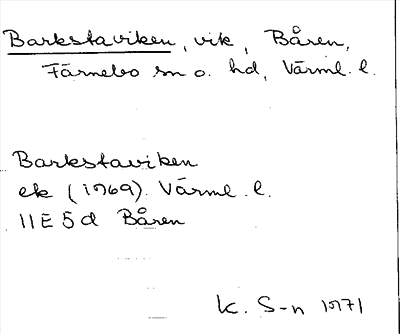 Barkstaviken, vik, Båren,
Färnebo sn o. hd, Värml. l.
Barkstaviken
ek (1969) Värml. l.
11E 5d Båren
K. S-n 1971